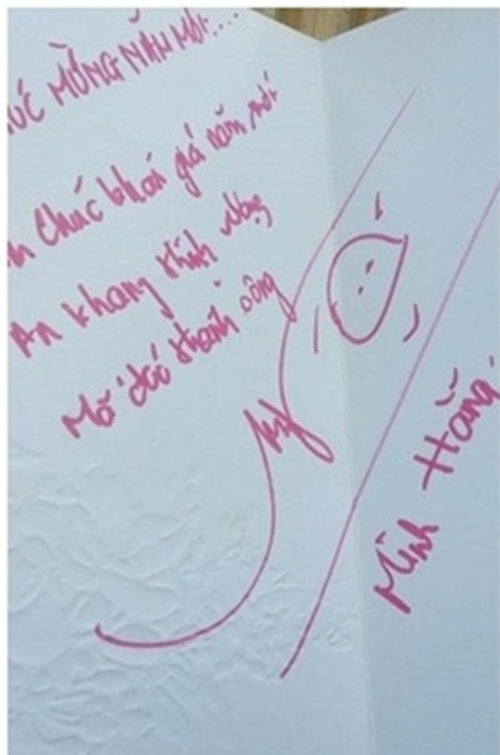 ÚC MỪNG NĂM MỚI....
n chúc khán giả năm mới
An khang thịnh vượng
Mã đáo thành công
Minh Hằng.